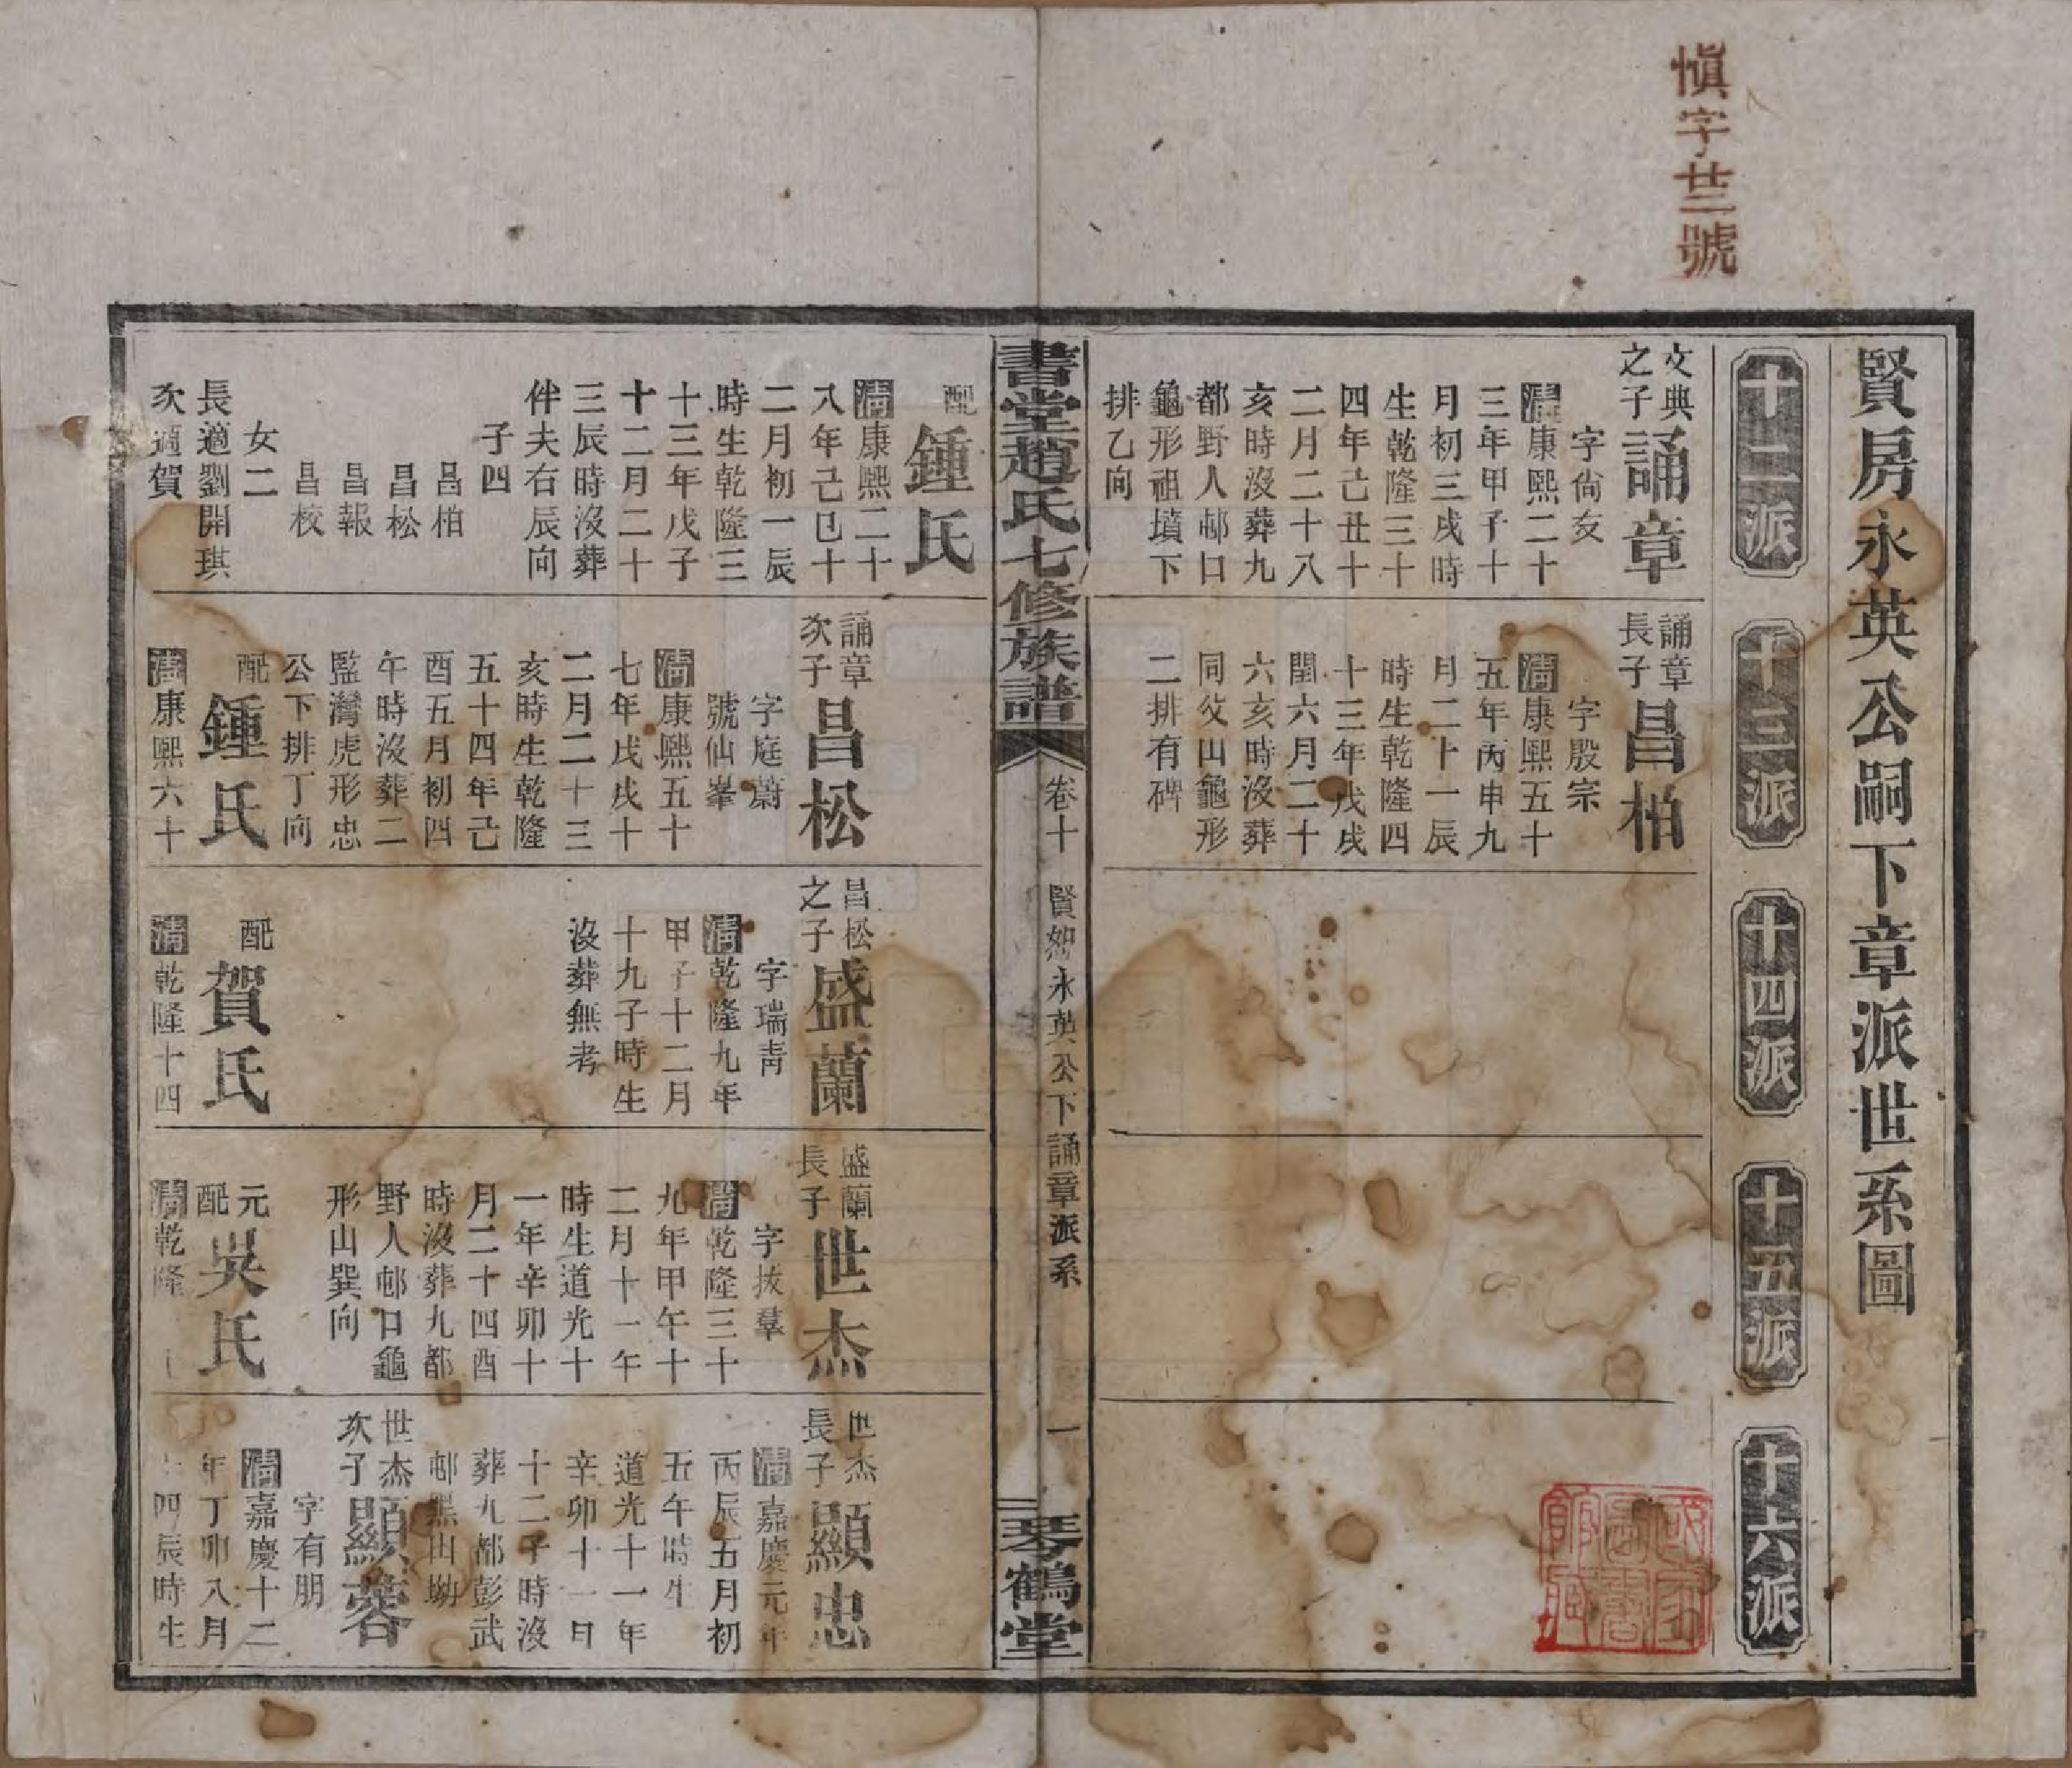 慎字廿三號
賢房永英公嗣下章派世系圖
十二派
十三派
十四派
十五派
十六派
文典
之子
誦章
字尙友
清康熙二十
三年甲子十
月初三戌時
生乾隆三十
四年己丑十
二月二十八
亥時沒葬九
都野人邨口
龜形祖墳下
排乙向
誦章
長子
昌柏
字殷宗
清康熙五十
五年丙申九
月二十一辰
時生乾隆四
十三年戊戌
閏六月二十
六亥時沒葬
同父山龜形
二排有碑
書堂趙氏七修族譜
卷十
賢恕永英公下誦章派系
一
琴鶴堂
配
鍾氏
清康熙二十
八年己巳十
二月初一辰
時生乾隆三
十三年戊子
十二月二十
三辰時沒葬
伴夫右辰向
子四
昌柏
昌松
昌報
昌校
女二
長適劉開琪
次適賀
誦章
次子
昌松
字庭蔚
號仙峯
清康熙五十
七年戊戌十
二月二十三
亥時生乾隆
五十四年己
酉五月初四
午時沒葬二
監灣虎形忠
公下排丁向
配
鍾氏
清康熙六十
昌松
之子
盛蘭
字瑞靑
清乾隆九年
甲子十二月
十九子時生
沒葬無考
配
賀氏
清乾隆十四
盛蘭
長子
世杰
字拔羣
清乾隆三十
九年甲午十
二月十一午
時生道光十
一年辛卯十
月二十四酉
時沒葬九都
野人邨口龜
形山巽向
元
配
吳氏
清乾隆
世杰
長子
顯忠
清嘉慶元年
丙辰五月初
五午時生
道光十一年
辛卯十一月
十二子時沒
葬九都彭武
邨黑山坳
世杰
次子
顯蓉
字有朋
清嘉慶十二
年丁卯八月
四辰時生